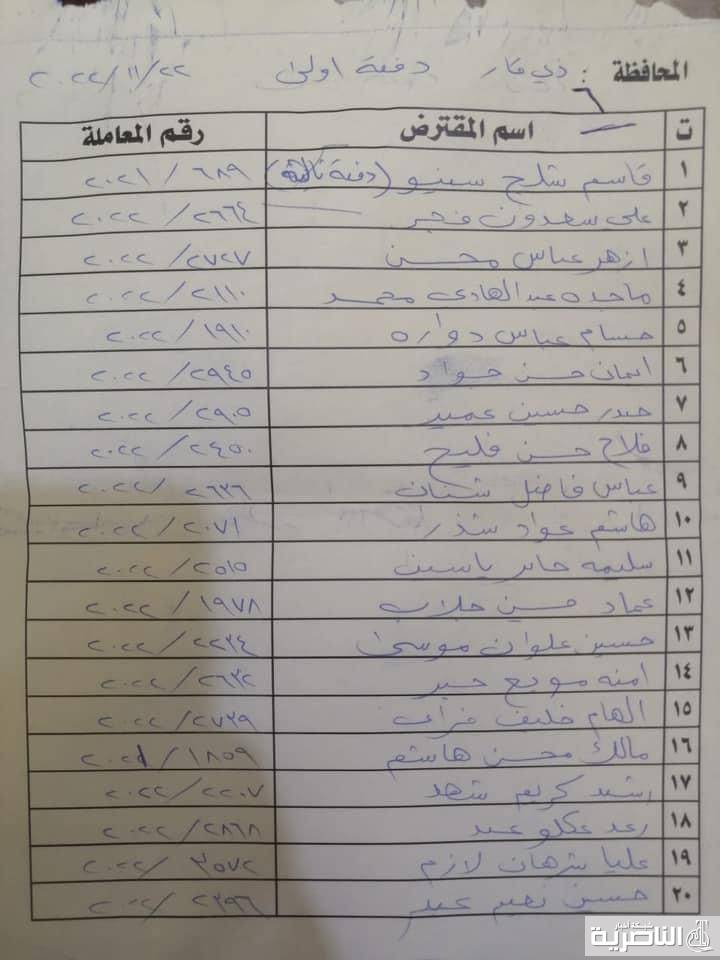 المحافظة : ذي قار دفعة اولى ٢٠٢٢/١١/٢٢
٦
ت اسم المقترض رقم المعاملة
١ قاسم شلح (دفعة ثالثة) ٦٨٩ / ٢٠٢١
٢ علي سعدون فجر ٢٦٦٤ / ٢٠٢٢
٣ ازهر عباس محسن ٢٧٢٧ / ٢٠٢٢
٤ ماجده عبد الهادي محمد ٢١١٠ / ٢٠٢٢
٥ حسام عباس دواره ١٩١٠ / ٢٠٢٢
٦ ايمان حسن جواد ٢٩٤٥ / ٢٠٢٢
٧ حيدر حسين عمير ٢٩٠٥ / ٢٠٢٢
٨ فلاح حسن فليح ٢٤٥٠ / ٢٠٢٢
٩ عباس فاضل شنان ٢٦٢٦ / ٢٠٢٢
١٠ هاشم عواد شذر ٢٠٧١ / ٢٠٢٢
١١ سليمه جابر ياسين ٢٥١٥ / ٢٠٢٢
١٢ عماد حسين جلاب ١٩٧٨ / ٢٠٢٢
١٣ حسين علوان موسى ٢٢٢٤ / ٢٠٢٢
١٤ امنه جبر ٢٦٢٢ / ٢٠٢٢
١٥ الهام خليف ٢٧٢٩ / ٢٠٢٢
١٦ مالك محسن هاشم ١٨٥٩ /
١٧ رشيد كريم شهد ٢٢٠٧ / ٢٠٢٢
١٨ رعد عكلو عبد ٢٨٦٨ / ٢٠٢٢
١٩ عليا شرهان لازم ٢٥٧٢ / ٢٠٢٢
٢٠ حسين نعيم ٢٢٩٦ / ٢٠٢٢
شبكة أخبار
الناصرية